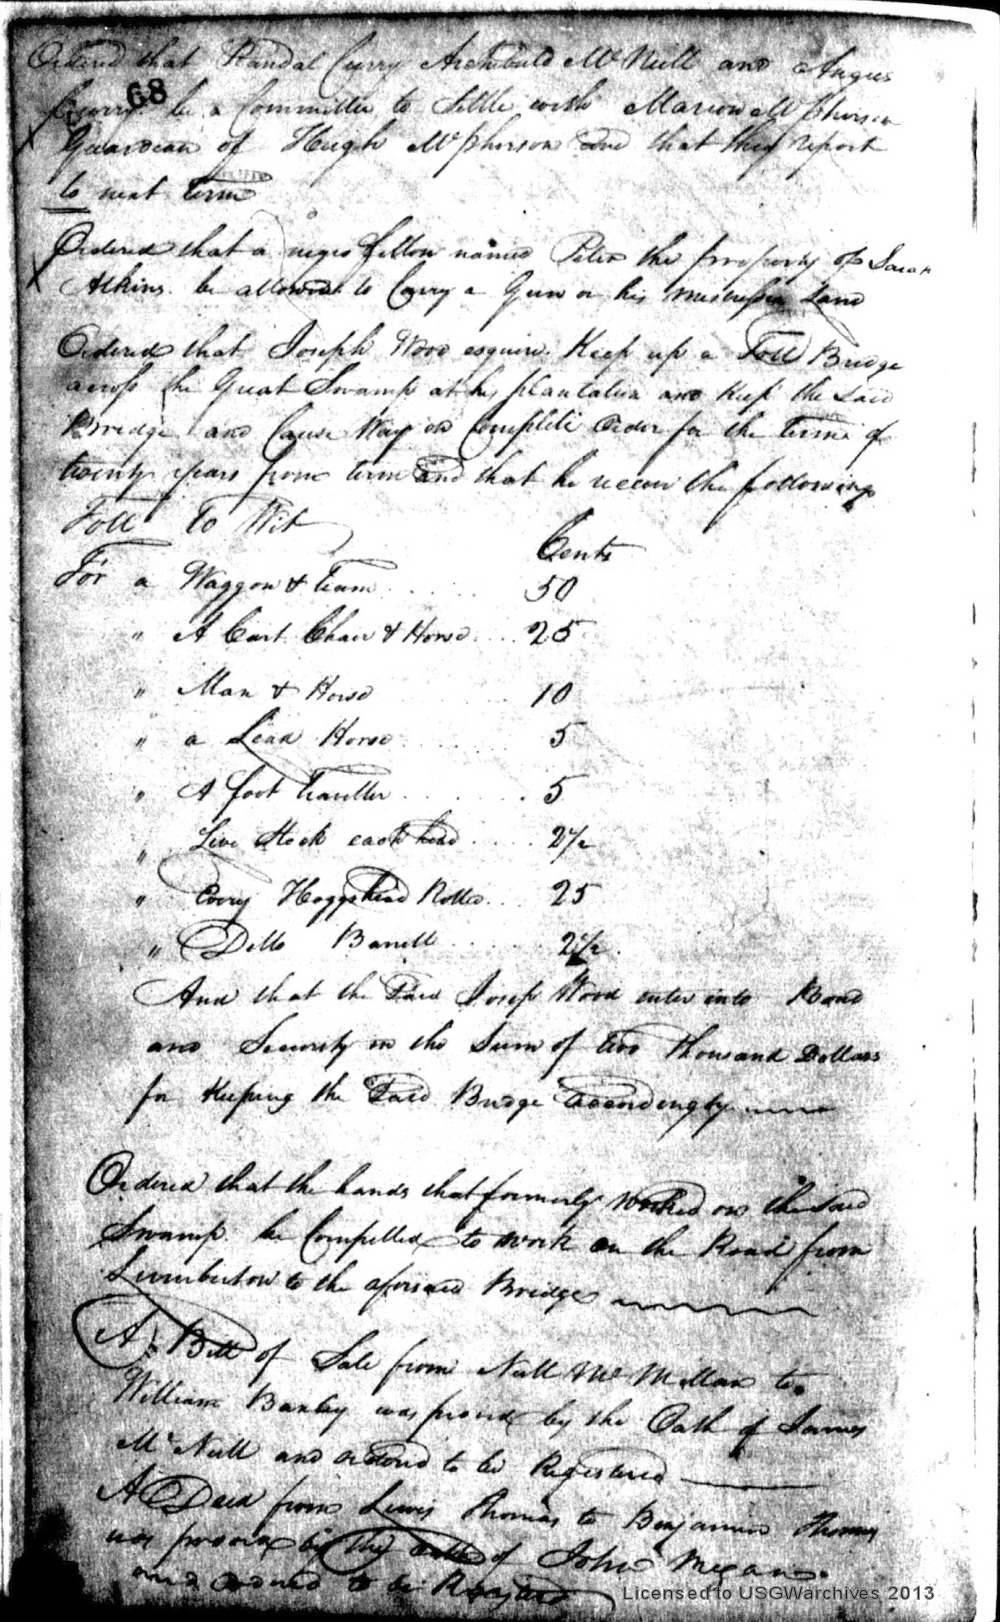 Ordered that Randal Curry Archibald McNeill and Angus
68
Curry be a Committee to Settle with Marion McPherson
Guardean of Hugh McPherson and that they report
to next term
Ordered that a negro fellow named Peter the property of Sarah
Atkins be allowed to Carry a Gun on his Land
Ordered that Joseph Wood esquire Keep up a Toll Bridge
across the Great Swamp at his plantation and Keep the Said
Bridge and Cause Way in Complete Order for the term of
twenty years from term and that he receive the following
Toll To Wit
Cents
For a Waggon & Team . . . . . 50
" A Cart Chair & Horse . . . 25
" Man & Horse 10
" a Lead Horse . . . . . 5
" A foot Traveller . . . . . . 5
" Live Stock each head . . . . 2½
" Every Hoggshead Rolled . . . 25
" Ditto Barrell . . . . . 2½
And that the Said Joseph Wood enter into Bond
and Security in the Sum of two Thousand Dollars
for Keeping the Said Bridge accordingly
Ordered that the hands that formerly worked on the Said
Swamp be Compelled to work on the Road from
Lumberton to the aforsaid Bridge
A Bill of Sale from Neill McMillan to
William Baxley was proved by the Oath of James
McNeill and ordered to be Registered
A Deed from Lewis Thomas to Benjamin Thomas
was proved by the oath of John
and ordered to be
Licensed to USGWarchives 2013